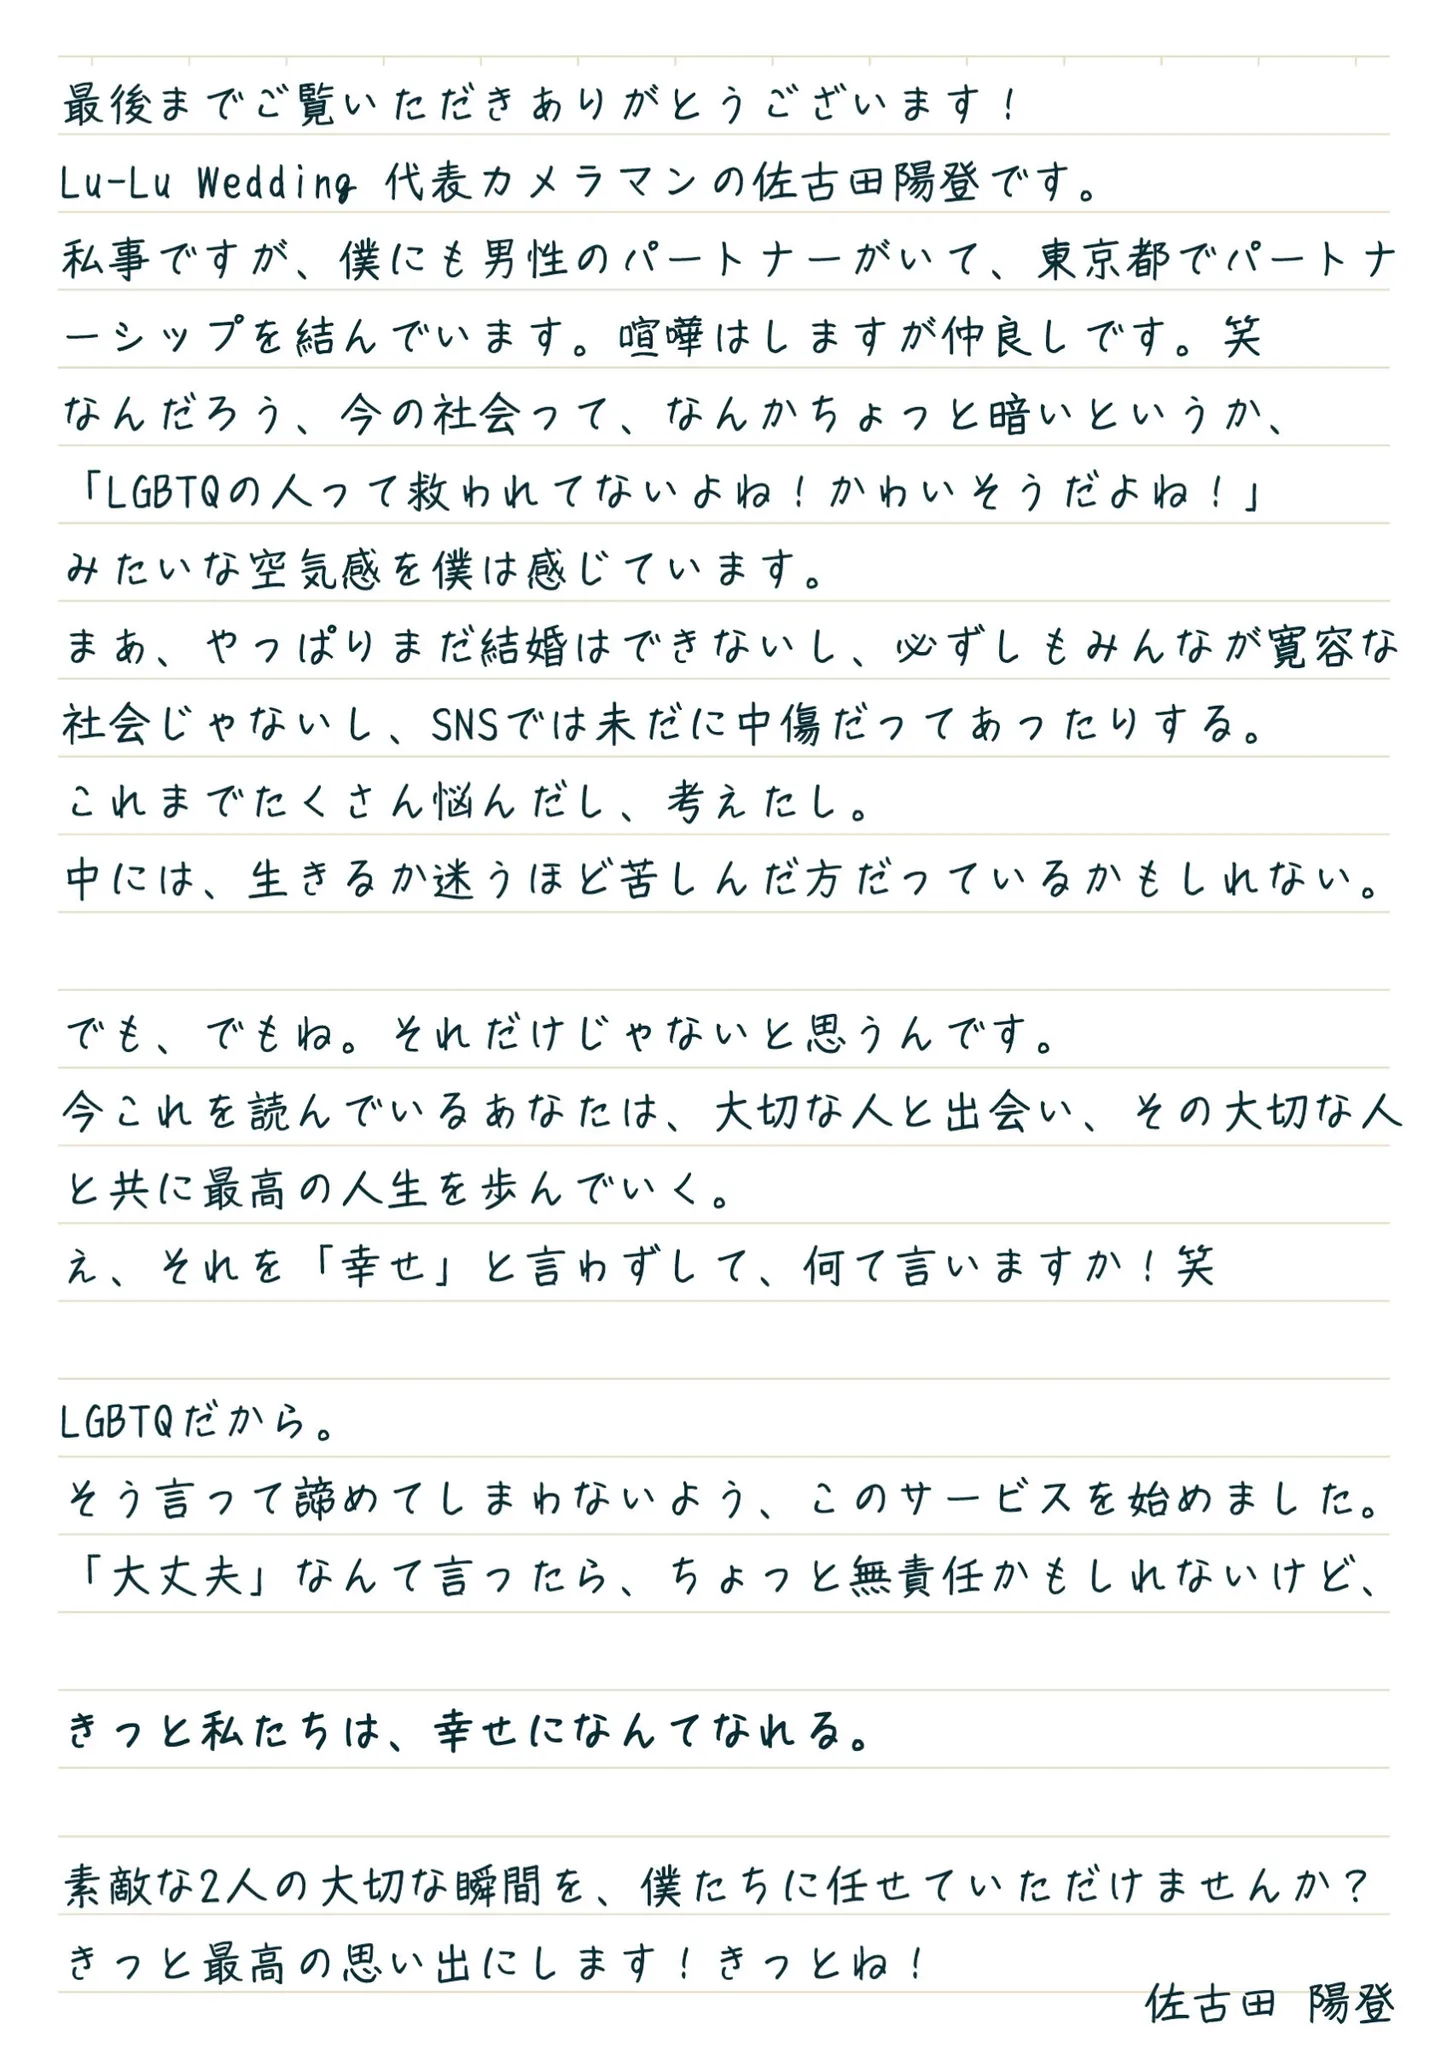 最後までご覧いただきありがとうございます！
Lu-Lu Wedding 代表カメラマンの佐古田陽登です。
私事ですが、僕にも男性のパートナーがいて、東京都でパートナ
ーシップを結んでいます。喧嘩はしますが仲良しです。笑
なんだろう、今の社会って、なんかちょっと暗いというか、
「LGBTQの人って救われてないよね！かわいそうだよね！」
みたいな空気感を僕は感じています。
まあ、やっぱりまだ結婚はできないし、必ずしもみんなが寛容な
社会じゃないし、SNSでは未だに中傷だってあったりする。
これまでたくさん悩んだし、考えたし。
中には、生きるか迷うほど苦しんだ方だっているかもしれない。
でも、でもね。それだけじゃないと思うんです。
今これを読んでいるあなたは、大切な人と出会い、その大切な人
と共に最高の人生を歩んでいく。
え、それを「幸せ」と言わずして、何て言いますか！笑
LGBTQだから。
そう言って諦めてしまわないよう、このサービスを始めました。
「大丈夫」なんて言ったら、ちょっと無責任かもしれないけど、
きっと私たちは、幸せになんてなれる。
素敵な2人の大切な瞬間を、僕たちに任せていただけませんか？
きっと最高の思い出にします！きっとね！
佐古田 陽登